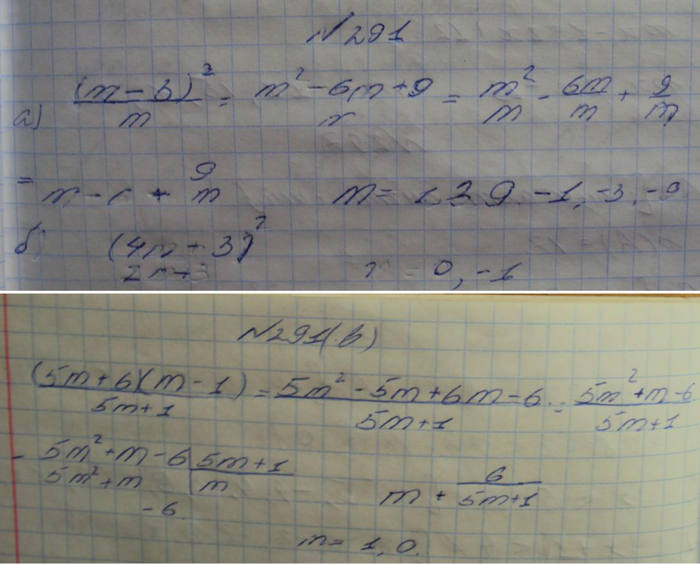 N291
а) (m-3)² / m = m²-6m+9 / m = m²/m - 6m/m + 9/m
= m - 6 + 9/m m = 1, 3, 9, -1, -3, -9
б) (4m+3)² / 2m+3 m = 0, -1
N291(b)
(5m+6)(m-1) / 5m+1 = 5m²-5m+6m-6 / 5m+1 = 5m²+m-6 / 5m+1
- 5m²+m-6 | 5m+1
5m²+m | m
-6 m + 6/5m+1
m = 1, 0.